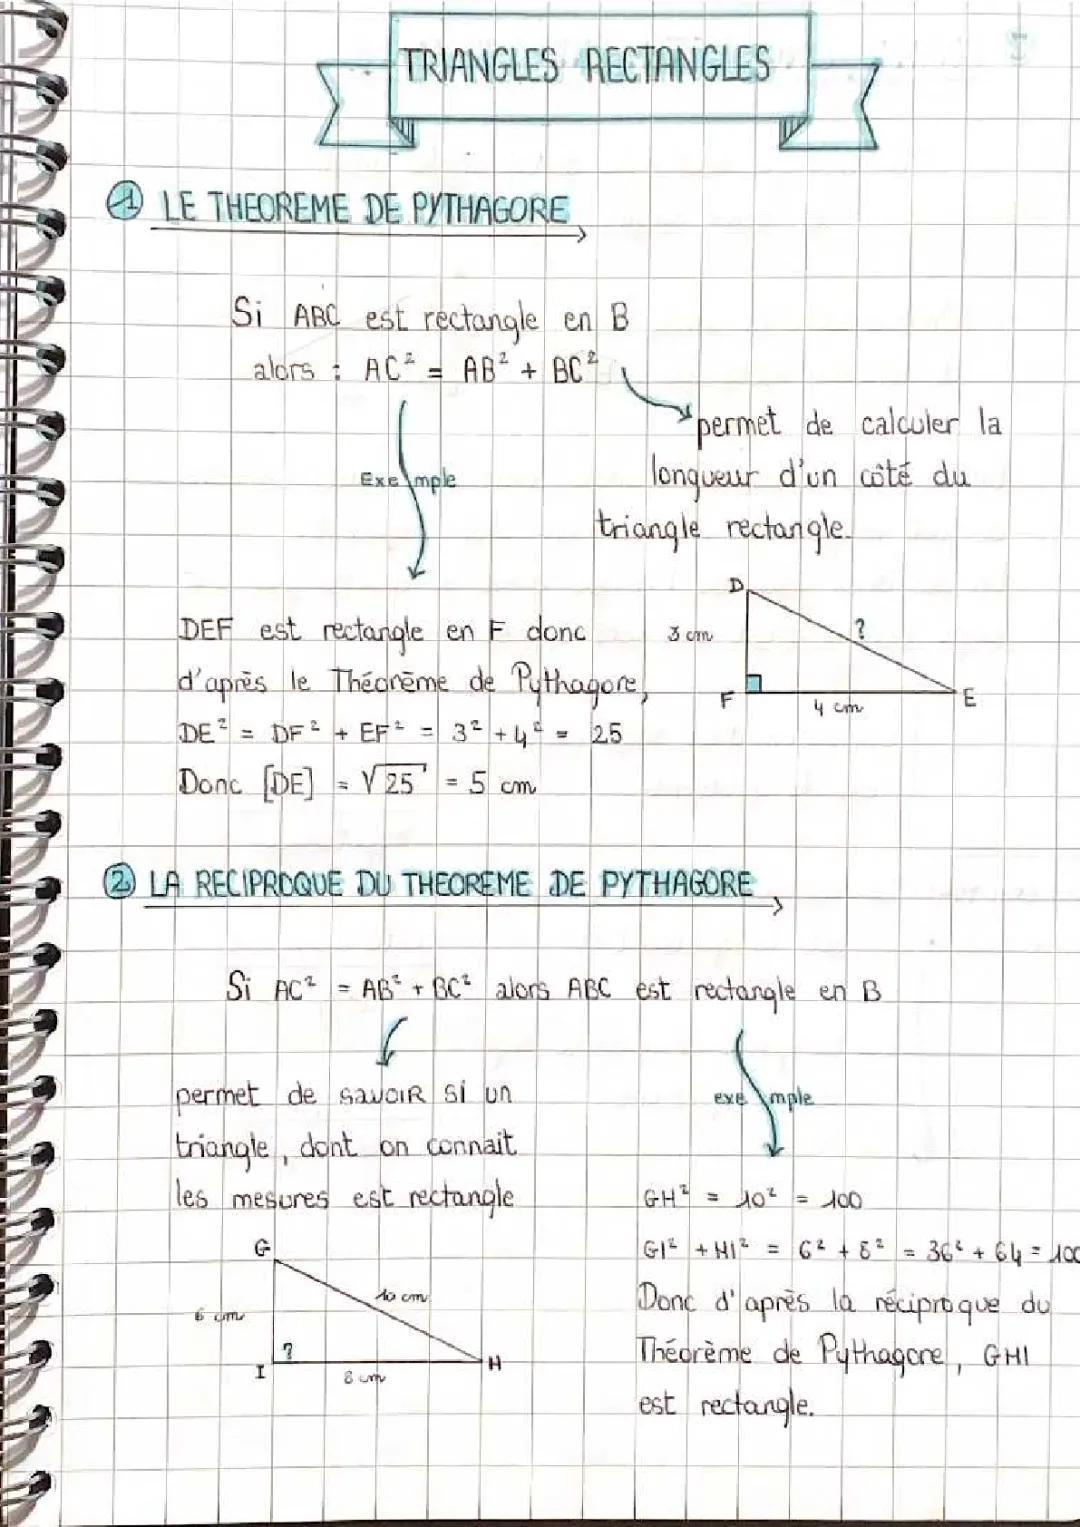 TRIANGLES RECTANGLES
1 LE THEOREME DE PYTHAGORE
Si ABC est rectangle en B
alors : AC² = AB² + BC²
permet de calculer la
longueur d'un côté du
triangle rectangle.
Exemple
DEF est rectangle en F donc
d'après le Théorème de Pythagore,
DE² = DF² + EF² = 3² + 4² = 25
Donc [DE] = √25 = 5 cm
D
3 cm
?
F
4 cm
E
2 LA RECIPROQUE DU THEOREME DE PYTHAGORE
Si AC² = AB² + BC² alors ABC est rectangle en B
permet de savoir si un
triangle, dont on connait
les mesures est rectangle
exemple
GH² = 10² = 100
GI² + HI² = 6² + 8² = 36² + 64 = 100
Donc d'après la réciproque du
Théorème de Pythagore, GHI
est rectangle.
G
10 cm
6 cm
?
I
8 cm
H